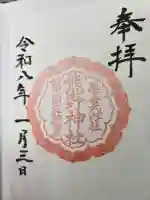 奉拝
熊野神社
令和八年一月三日